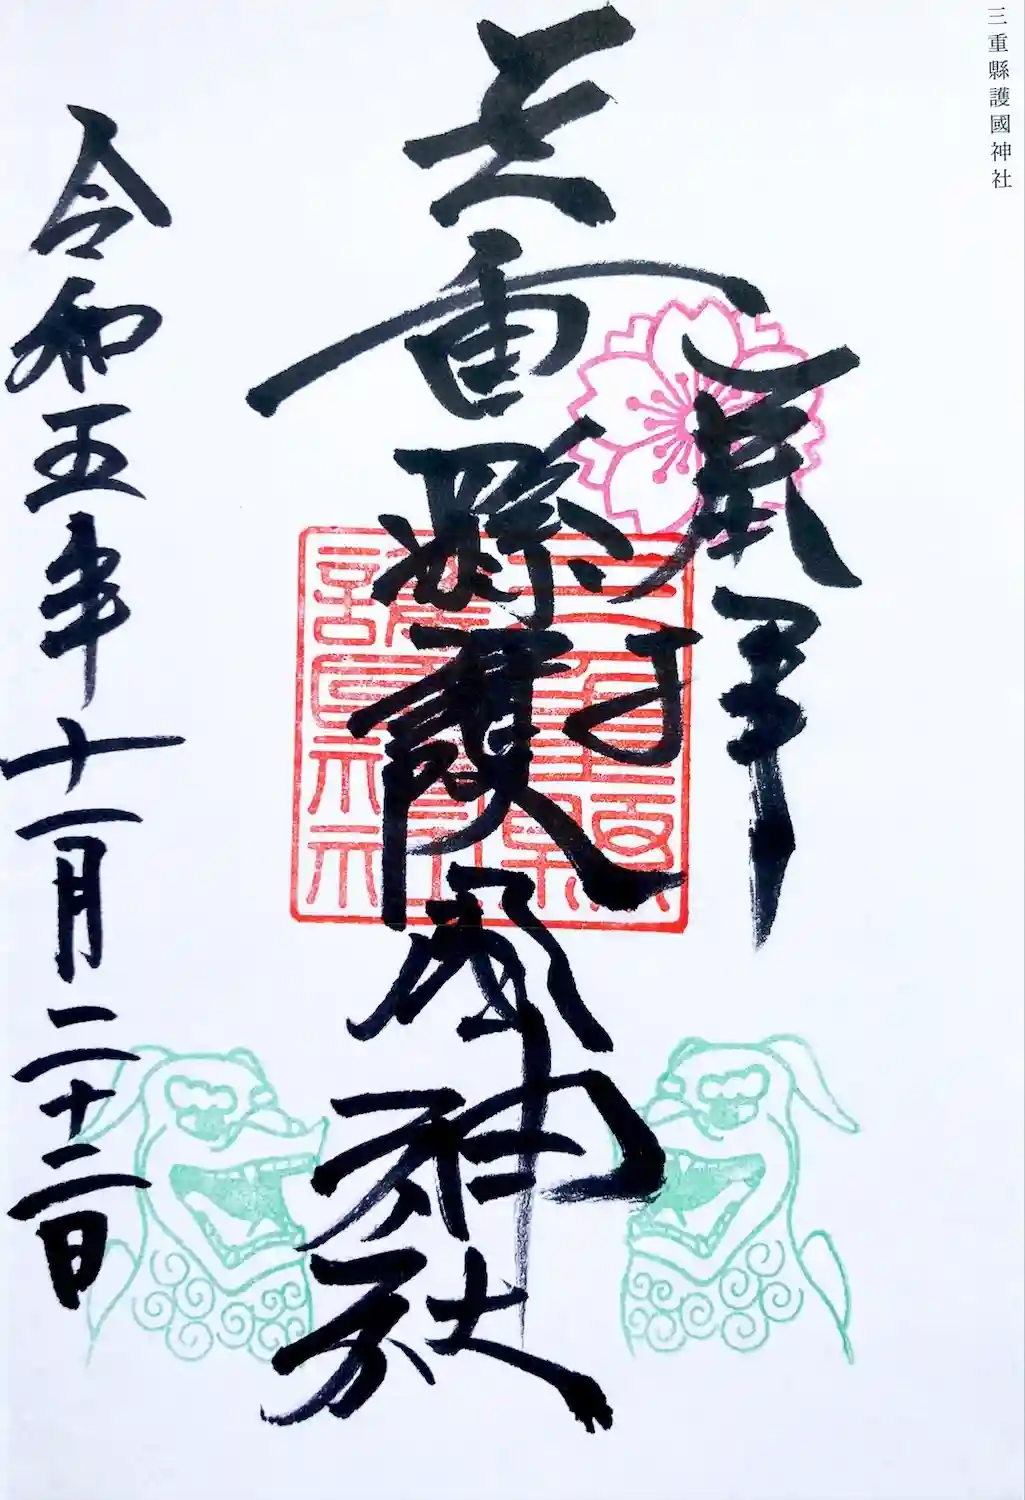 三重縣護國神社
奉拝
三重縣護國神社
三重縣
護國神社
令和五年十一月二十三日